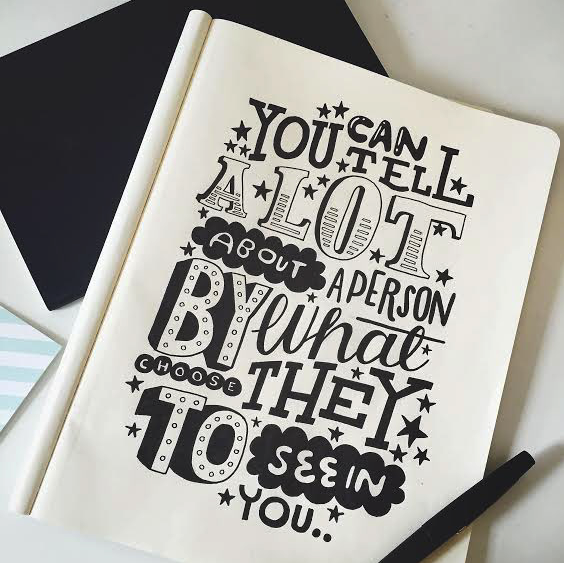 YOU CAN
TELL
A LOT
ABOUT A PERSON
BY what
CHOOSE THEY
TO SEE IN
YOU..